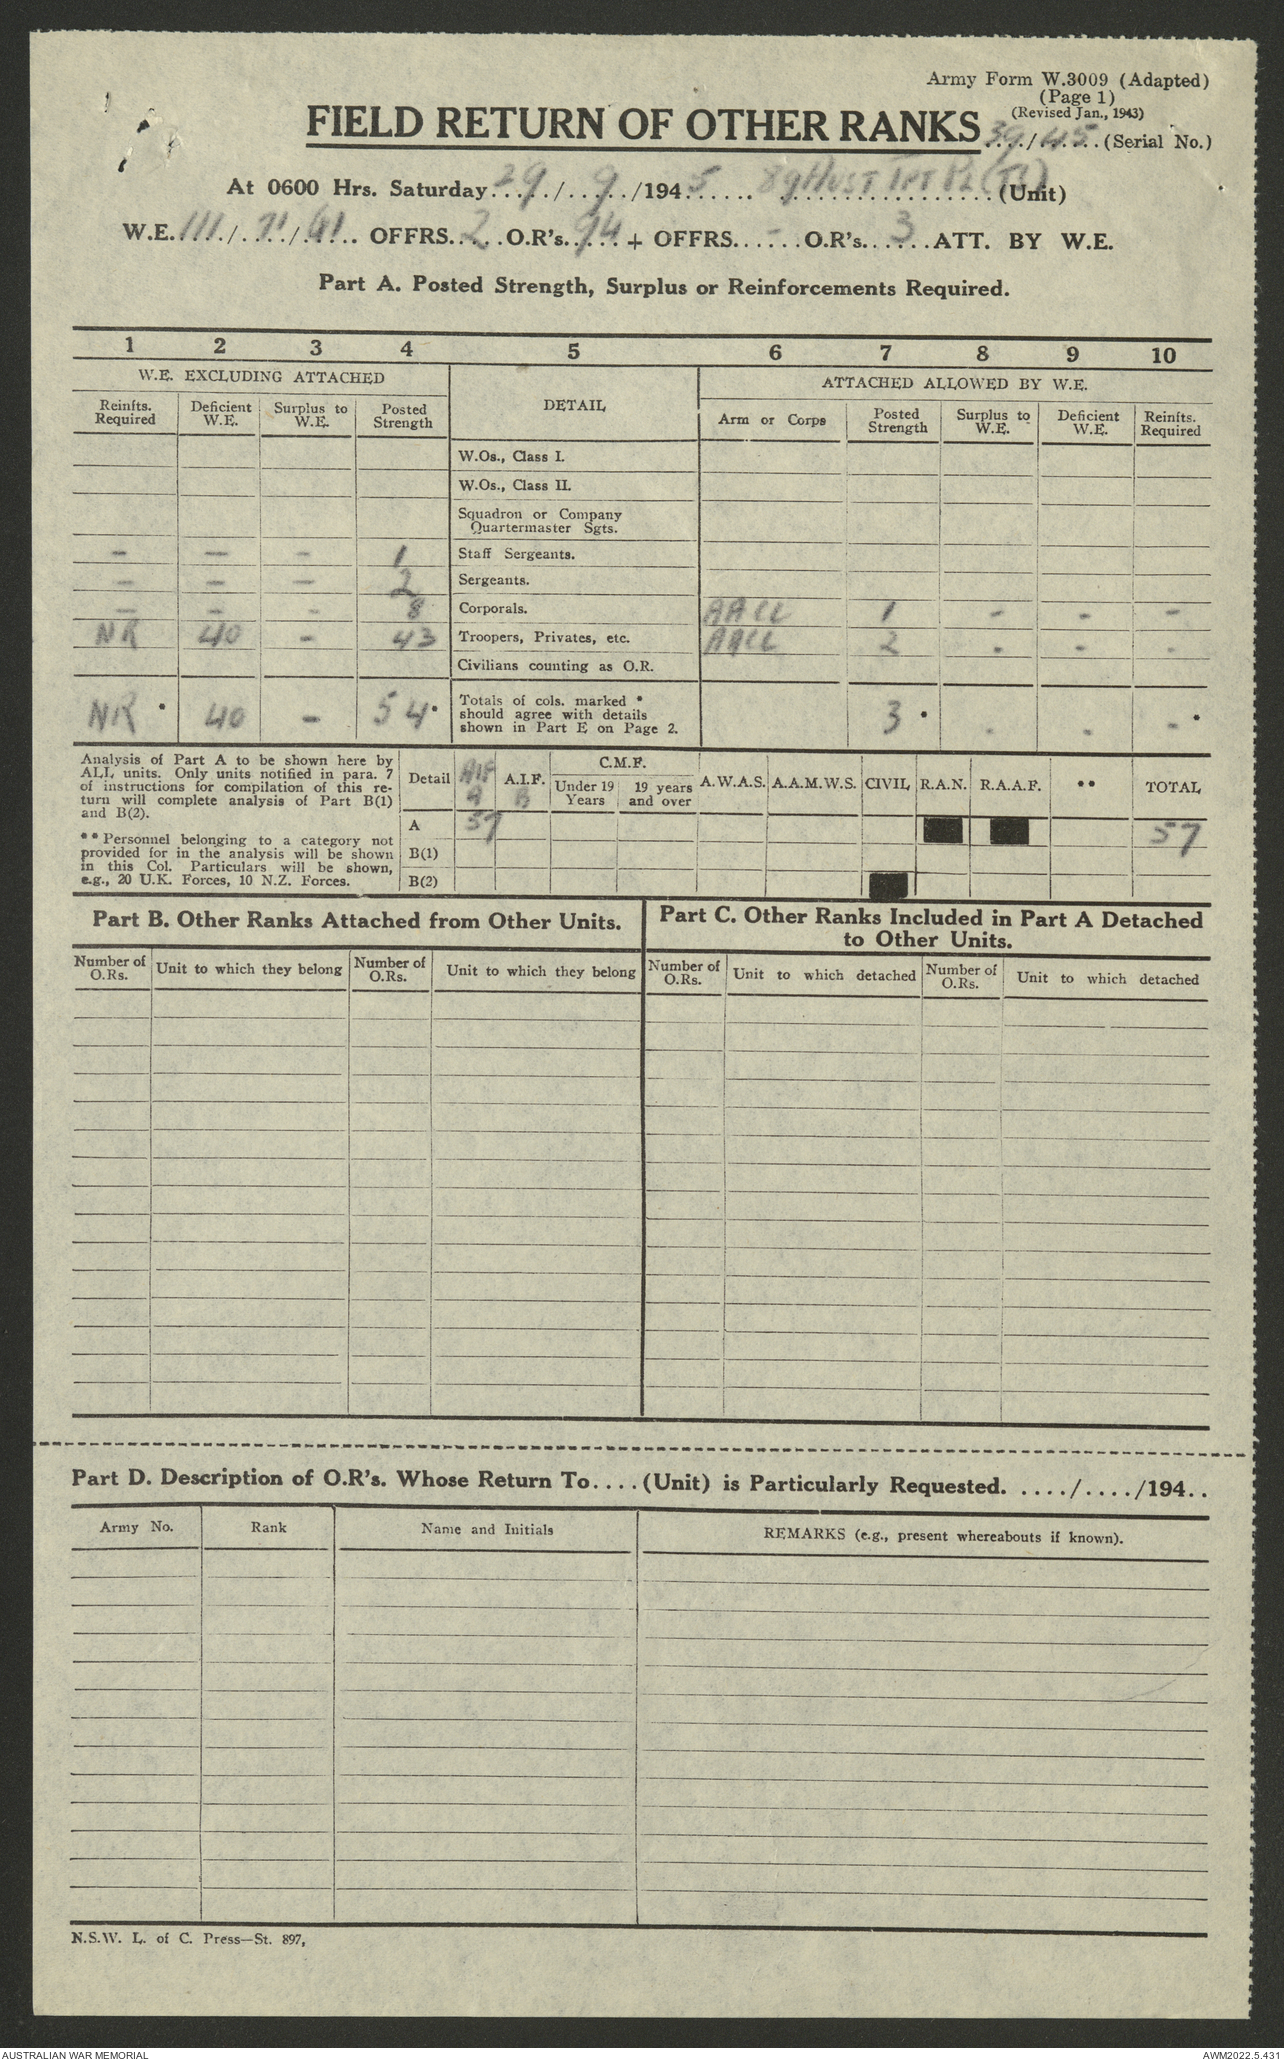 Army Form W.3009 (Adapted)
(Page 1)
(Revised Jan., 1943)
FIELD RETURN OF OTHER RANKS 39/45 (Serial No.)
At 0600 Hrs. Saturday 29/9/1945 8 9 Aust Tpt Pl (Unit)
W.E. 111/ / OFFRS. 2 O.R's. 94 + OFFRS. - O.R's. 3 ATT. BY W.E.
Part A. Posted Strength, Surplus or Reinforcements Required.
1 2 3 4 5 6 7 8 9 10
W.E. EXCLUDING ATTACHED DETAIL ATTACHED ALLOWED BY W.E.
Reinfts. Required Deficient W.E. Surplus to W.E. Posted Strength Arm or Corps Posted Strength Surplus to W.E. Deficient W.E. Reinfts. Required
W.Os., Class I.
W.Os., Class II.
Squadron or Company
Quartermaster Sgts.
- - - 1 Staff Sergeants.
- - - 2 Sergeants.
- - - 8 Corporals. AACC 1 - - -
NR 40 - 43 Troopers, Privates, etc. AACC 2 - - -
Civilians counting as O.R.
NR * 40 - 54 * Totals of cols. marked * should agree with details shown in Part E on Page 2. 3 * - - - *
Analysis of Part A to be shown here by
ALL units. Only units notified in para. 7
of instructions for compilation of this re-
turn will complete analysis of Part B(1)
and B(2).
** Personnel belonging to a category not
provided for in the analysis will be shown
in this Col. Particulars will be shown,
e.g., 20 U.K. Forces, 10 N.Z. Forces.
Detail AIF A A.I.F. B C.M.F. Under 19 Years 19 years and over A.W.A.S. A.A.M.W.S. CIVIL R.A.N. R.A.A.F. ** TOTAL
A 57 57
B(1)
B(2)
Part B. Other Ranks Attached from Other Units.
Part C. Other Ranks Included in Part A Detached
to Other Units.
Number of O.Rs. Unit to which they belong Number of O.Rs. Unit to which they belong Number of O.Rs. Unit to which detached Number of O.Rs. Unit to which detached
Part D. Description of O.R's. Whose Return To.... (Unit) is Particularly Requested. ..../..../194..
Army No. Rank Name and Initials REMARKS (e.g., present whereabouts if known).
N.S.W. L. of C. Press—St. 897,
AUSTRALIAN WAR MEMORIAL AWM2022.5.431